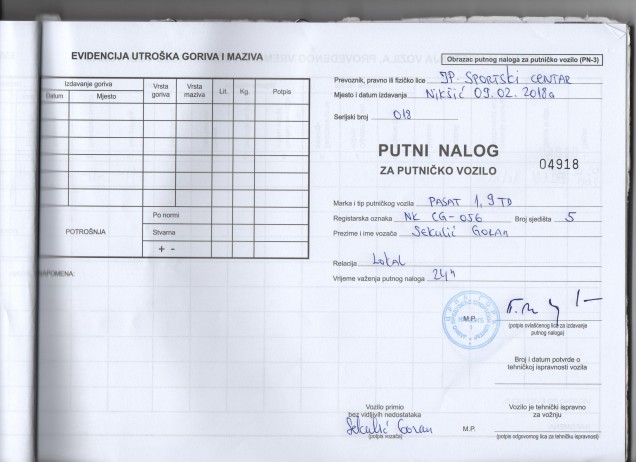 EVIDENCIJA UTROŠKA GORIVA I MAZIVA
Izdavanje goriva
Datum Mjesto
Vrsta goriva
Vrsta maziva
Lit.
Kg.
Potpis
POTROŠNJA
Po normi
Stvarna
+ -
NAPOMENA:
Obrazac putnog naloga za putničko vozilo (PN-3)
Prevoznik, pravno ili fizičko lice JP. SPORTSKI CENTAR
Mjesto i datum izdavanja Nikšić 09.02.2018
Serijski broj 018
PUTNI NALOG
ZA PUTNIČKO VOZILO
04918
Marka i tip putničkog vozila PASAT 1,9 TD
Registarska oznaka NK CG-056 Broj sjedišta 5
Prezime i ime vozača Sekulić Goran
Relacija Lokal
Vrijeme važenja putnog naloga 24h
M.P.
(potpis ovlašćenog lica za izdavanje
putnog naloga)
Broj i datum potvrde o
tehničkoj ispravnosti vozila
Vozilo primio
bez vidljivih nedostataka
Sekulić Goran
(potpis vozača)
M.P.
Vozilo je tehnički ispravno
za vožnju
(potpis odgovornog lica za tehničku ispravnost)